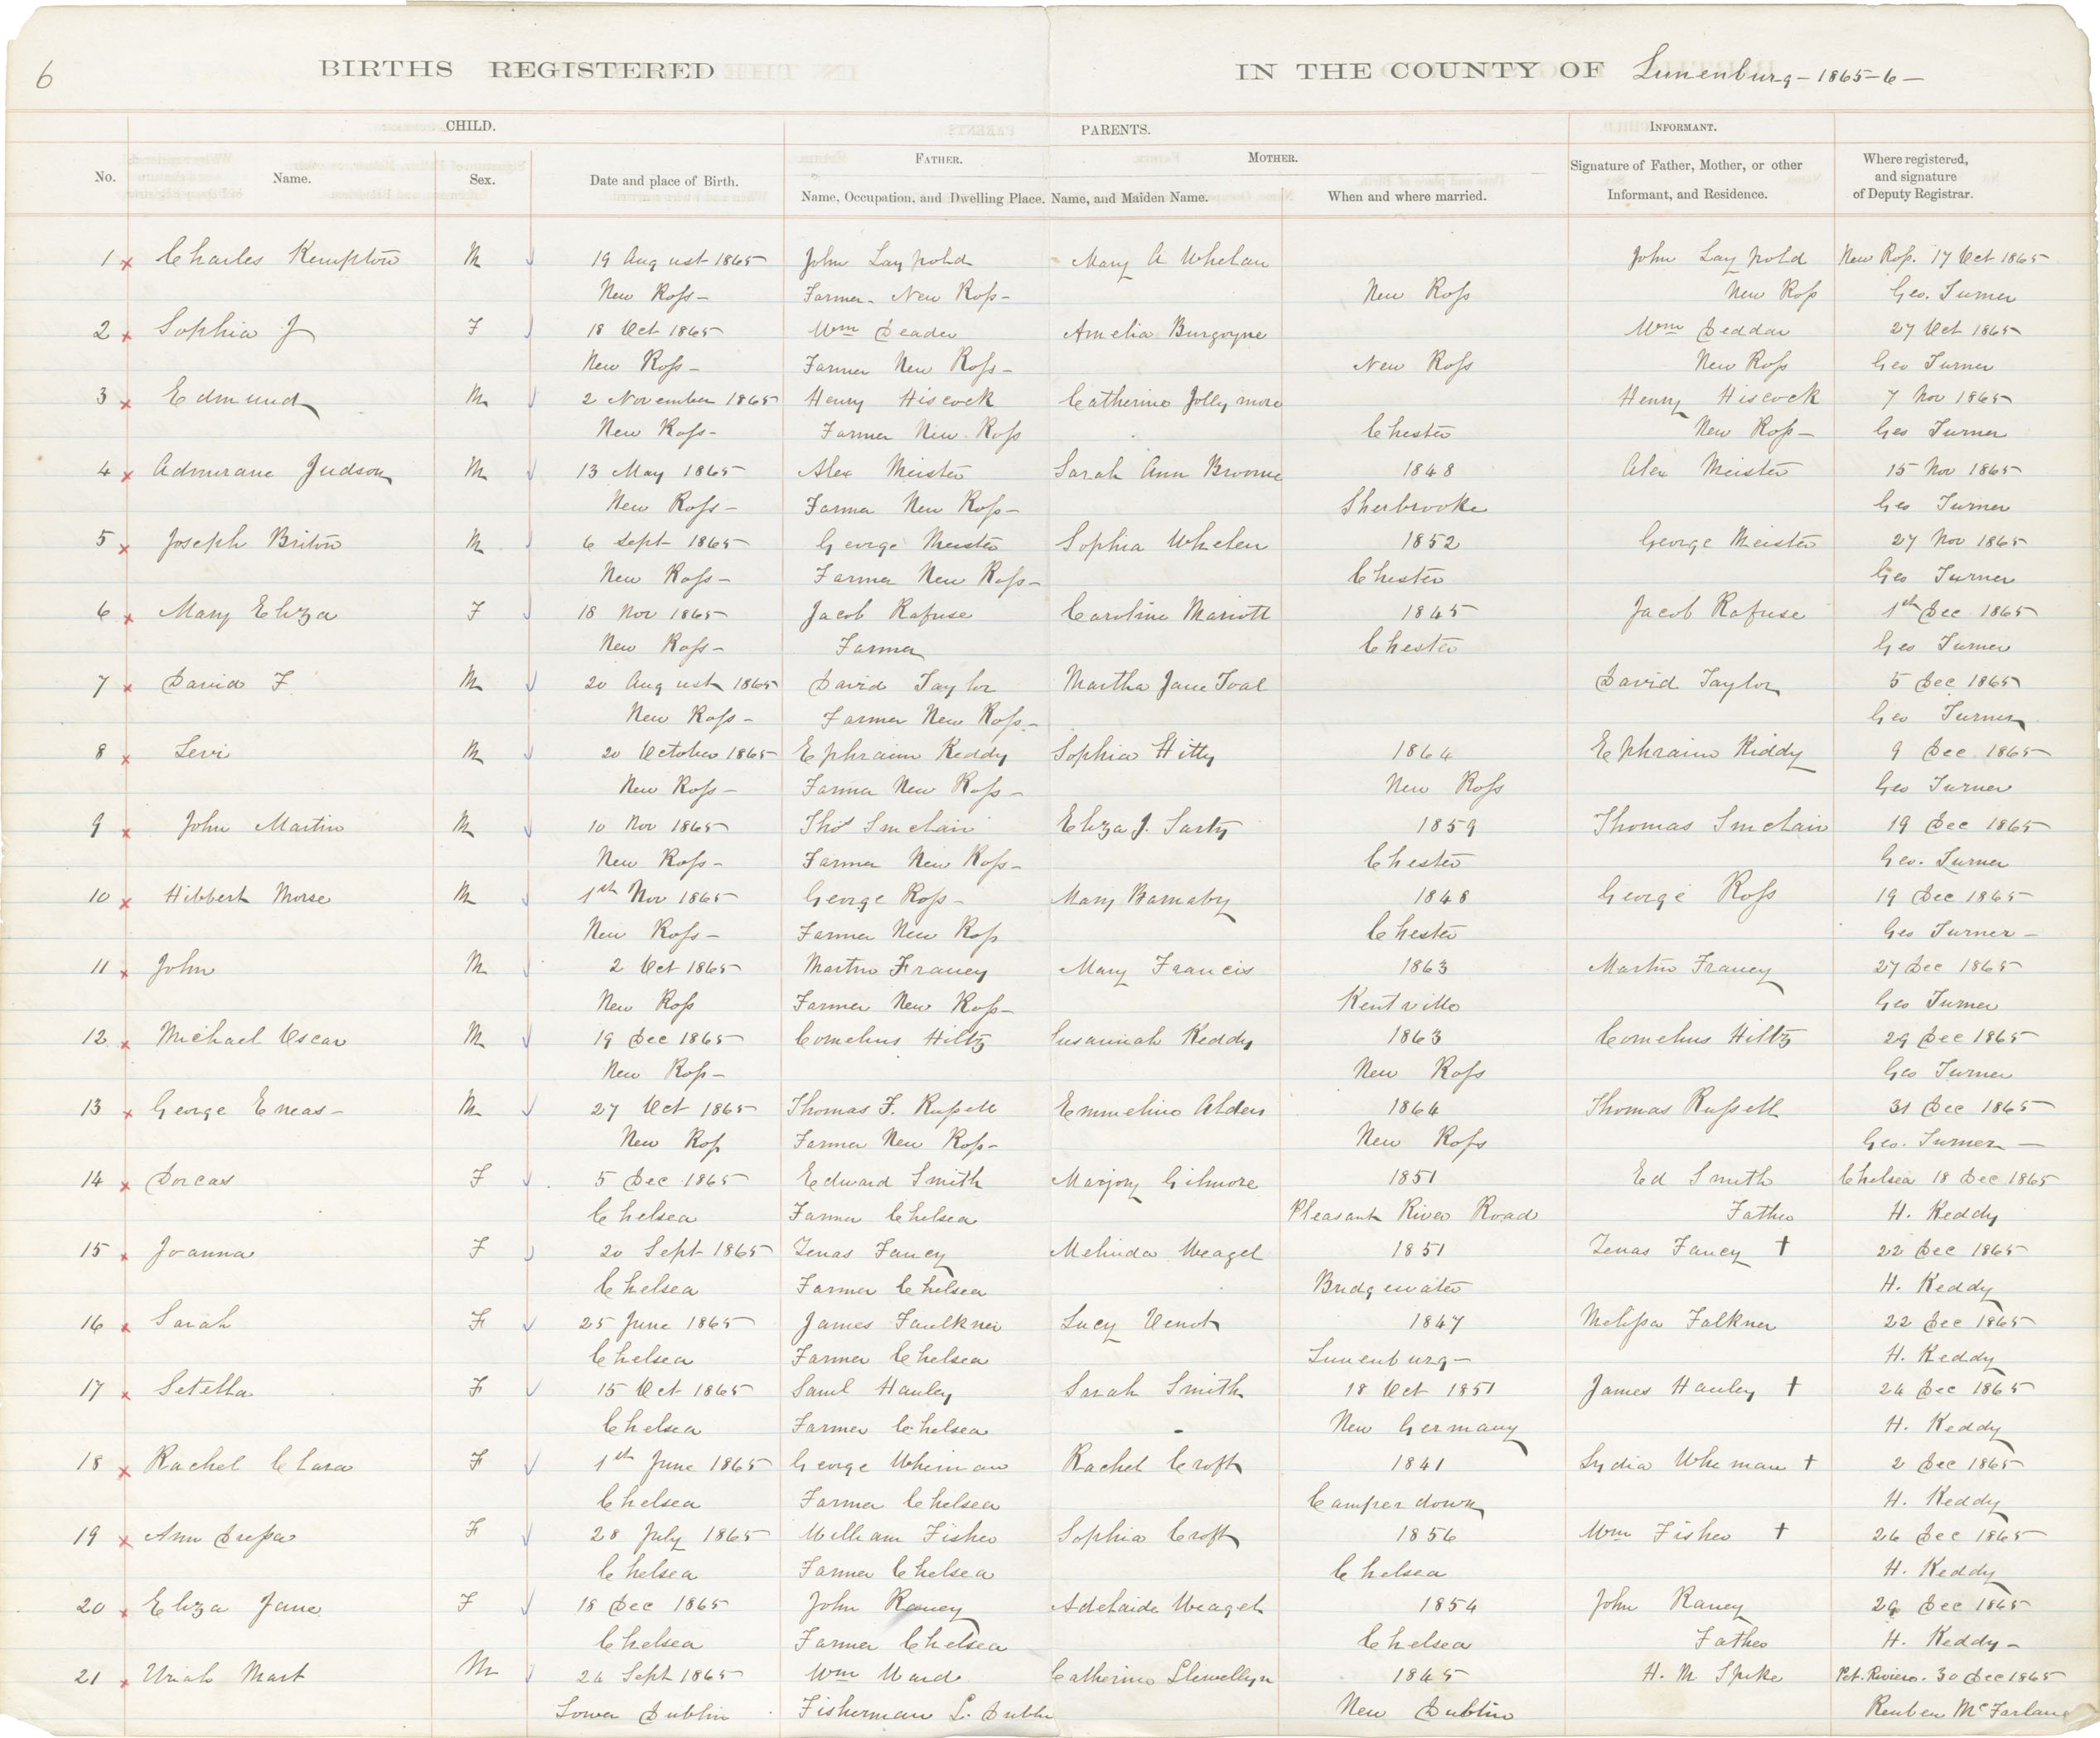 6
BIRTHS REGISTERED IN THE COUNTY OF Lunenburg - 1865-6 -
CHILD. PARENTS. INFORMANT.
FATHER. MOTHER.
No. Name. Sex. Date and place of Birth. Name, Occupation, and Dwelling Place. Name, and Maiden Name. When and where married. Signature of Father, Mother, or other Informant, and Residence. Where registered, and signature of Deputy Registrar.
1 x Charles Kempton M 19 August 1865 John Laypold Mary A Whelan John Laypold New Ross. 17 Oct 1865
New Ross - Farmer - New Ross - New Ross New Ross Geo. Turner
2 x Sophia J F 18 Oct 1865 Wm Deader Amelia Burgoyne Wm Deddar 27 Oct 1865
New Ross - Farmer New Ross - New Ross New Ross Geo Turner
3 x Edmund M 2 November 1865 Henry Hiscock Catherine Jollymore Henry Hiscock 7 Nov 1865
New Ross - Farmer New Ross Chester New Ross - Geo Turner
4 x Judson M 13 May 1865 Alex Meister Sarah Ann Broome 1848 Alex Meister 15 Nov 1865
New Ross - Farmer New Ross - Sherbrooke Geo Turner
5 x Joseph Briton M 6 Sept 1865 George Meister Sophia Whelen 1852 George Meister 27 Nov 1865
New Ross - Farmer New Ross - Chester Geo Turner
6 x Mary Eliza F 18 Nov 1865 Jacob Rafuse Caroline Mariott 1845 Jacob Rafuse 1st Dec 1865
New Ross - Farmer Chester Geo Turner
7 x David F M 20 August 1865 David Taylor Martha Jane Toal David Taylor 5 Dec 1865
New Ross - Farmer New Ross - Geo Turner
8 x Levi M 20 October 1865 Ephraim Keddy Sophia Hitty 1864 Ephraim Kiddy 9 Dec 1865
New Ross - Farmer New Ross - New Ross Geo Turner
9 x John Martin M 10 Nov 1865 Thos Sinclair Eliza J. Sarty 1859 Thomas Sinclair 19 Dec 1865
New Ross - Farmer New Ross - Chester Geo. Turner
10 x Hibbert Morse M 1st Nov 1865 George Ross - Mary Barnaby 1848 George Ross 19 Dec 1865
New Ross - Farmer New Ross Chester Geo Turner -
11 x John M 2 Oct 1865 Martin Franey Mary Francis 1863 Martin Franey 27 Dec 1865
New Ross Farmer New Ross - Kentville Geo Turner
12 x Michael Oscar M 19 Dec 1865 Cornelius Hiltz Susannah Keddy 1863 Cornelius Hiltz 29 Dec 1865
New Ross - New Ross Geo Turner
13 x George Eneas - M 27 Oct 1865 Thomas F. Russell Emmeline Alden 1864 Thomas Russell 31 Dec 1865
New Ross Farmer New Ross - New Ross Geo. Turner -
14 x Dorcas F 5 Dec 1865 Edward Smith Marjory Gilmore 1851 Ed Smith Chelsea 18 Dec 1865
Chelsea Farmer Chelsea Pleasant River Road Father H. Keddy
15 x Joanna F 20 Sept 1865 Zenas Fancy Melinda Veagel 1851 Zenas Fancy † 22 Dec 1865
Chelsea Farmer Chelsea Bridgewater H. Keddy
16 x Sarah F 25 June 1865 James Faulkner Lucy Venot 1847 Melissa Falkner 22 Dec 1865
Chelsea Farmer Chelsea Lunenburg - H. Keddy
17 x Setella F 15 Oct 1865 Saml Hanley Sarah Smith 18 Oct 1851 James Hanley † 24 Dec 1865
Chelsea Farmer Chelsea - New Germany H. Keddy
18 x Rachel Clara F 1st June 1865 George Wheinman Rachel Croft 1841 Lydia Wheman † 2 Dec 1865
Chelsea Farmer Chelsea Camperdown H. Keddy
19 x Ann F 28 July 1865 William Fisher Sophia Croft 1856 Wm Fisher † 26 Dec 1865
Chelsea Farmer Chelsea Chelsea H. Keddy
20 x Eliza Jane F 18 Dec 1865 John Raney Adelaide Veagel 1854 John Raney 29 Dec 1865
Chelsea Farmer Chelsea Chelsea Father H. Keddy -
21 x Uriah Mart M 24 Sept 1865 Wm Ward Catherine Llewellyn 1845 H. M Spike Pet. Riviere. 30 Dec 1865
Lower Dublin Fisherman L. Dublin New Dublin Reuben McFarlane